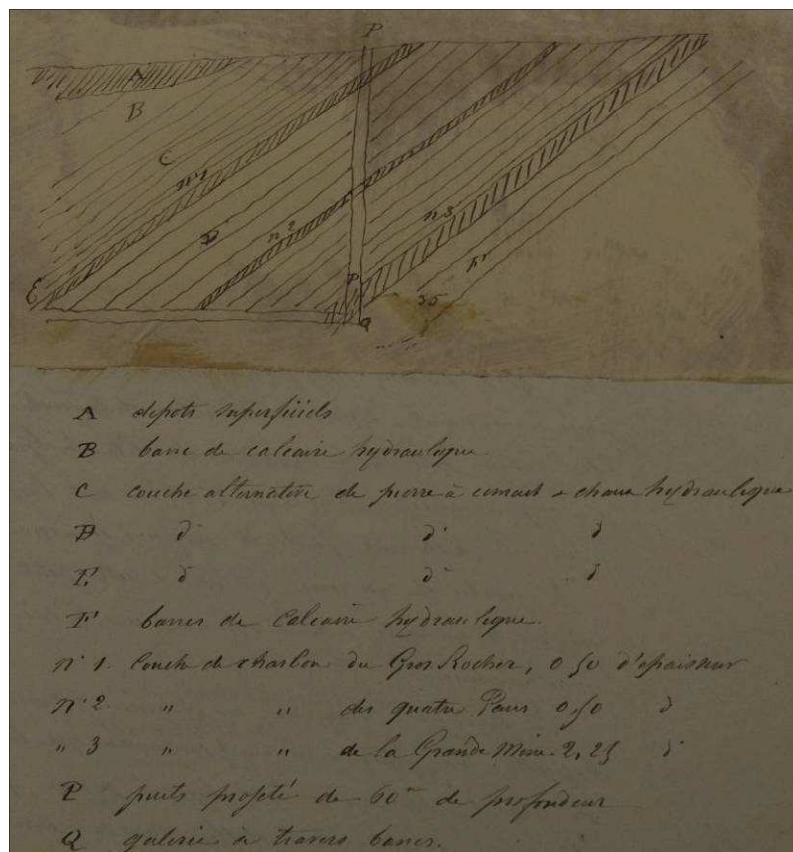 P
A
B
C
n° 1
D
n° 2
n 3
E
P
35
Q
A depots superficiels
B banc de calcaire hydraulique
C couche alternative de pierre à ciment & chaux hydraulique
D d° d° d
E. d d° d
F bancs de calcaire hydraulique.
n° 1. Couche de charbon du Gros Rocher, 0,50 d'épaisseur
n° 2 " " des quatre Pans 0,50 d
" 3 " " de la Grande Mine. 2,25 d°
P puits projeté de 60m de profondeur
Q galerie à travers bancs.